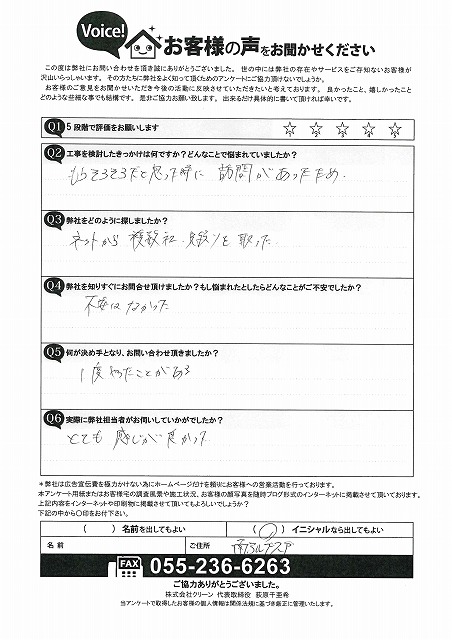 Voice!
お客様の声をお聞かせください
この度は弊社にお問い合わせを頂き誠にありがとうございました。世の中には弊社の存在やサービスをご存知ないお客様が
沢山いらっしゃいます。その方たちに弊社をよく知って頂くためのアンケートにご協力頂けないでしょうか。
お客様のご意見をお聞かせいただき今後の活動に反映させていただきたいと考えております。良かったこと、嬉しかったこと
どのような些細な事でも結構です。是非ご協力お願い致します。出来るだけ具体的に書いて頂ければ幸いです。
Q1 5段階で評価をお願いします ☆ ☆ ☆ ☆ ☆
Q2 工事を検討したきっかけは何ですか？どんなことで悩まれていましたか？
もうそろそろだと思った時に 訪問があったため.
Q3 弊社をどのように探しましたか？
ネットから 複数社 見積りを取った
Q4 弊社を知りすぐにお問合せ頂けましたか？もし悩まれたとしたらどんなことがご不安でしたか？
不安はなかった
Q5 何が決め手となり、お問い合わせ頂きましたか？
1度やったことがある
Q6 実際に弊社担当者がお伺いしていかがでしたか？
とても 感じが良かった
＊弊社は広告宣伝費を極力かけない為にホームページだけを頼りにお客様への営業活動を行っております。
本アンケート用紙またはお客様宅の調査風景や施工状況、お客様の顔写真を随時ブログ形式のインターネットに掲載させて頂いております。
上記内容をインターネットや印刷物に掲載させて頂いてもよろしいでしょうか？
下記の中から〇印をお付下さい。
（ ）名前を出してもよい （○）イニシャルなら出してもよい
名 前 ご住所 南アルプス市
FAX 055-236-6263
ご協力ありがとうございました。
株式会社クリーン 代表取締役 荻原千亜希
当アンケートで取得したお客様の個人情報は関係法規に基づき厳正に管理いたします。